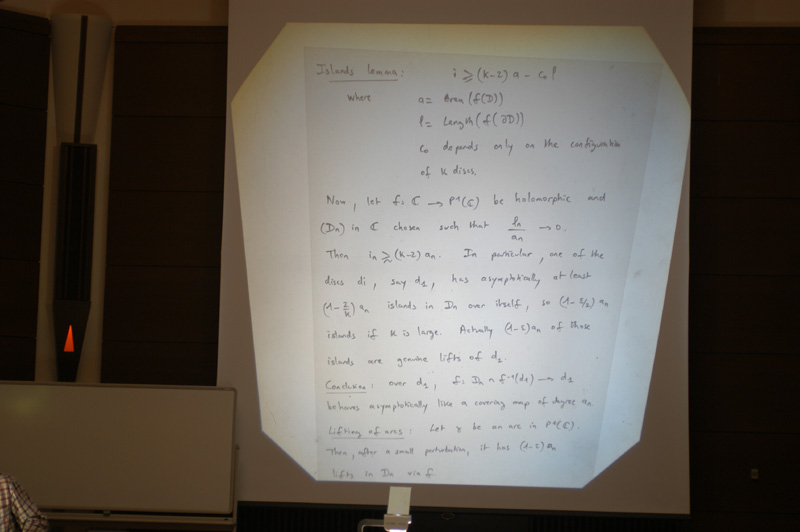 Islands lemma: i ⩾ (k-2) a - c₀ l
where a = Area (f(D))
l = Length (f(∂D))
c₀ depends only on the configuration
of k discs.
Now, let f: ℂ → P¹(ℂ) be holomorphic and
(Dn) in ℂ chosen such that ln/an → 0.
Then in ≳ (k-2) an. In particular, one of the
discs di, say d1, has asymptotically at least
(1-2/k) an islands in Dn over itself, so (1-ε/2) an
islands if k is large. Actually (1-ε) an of those
islands are genuine lifts of d1.
Conclusion: over d1, f: Dn ∩ f⁻¹(d1) → d1
behaves asymptotically like a covering map of degree an
Lifting of arcs: Let γ be an arc in P¹(ℂ).
Then, after a small perturbation, it has (1-ε) an
lifts in Dn via f.